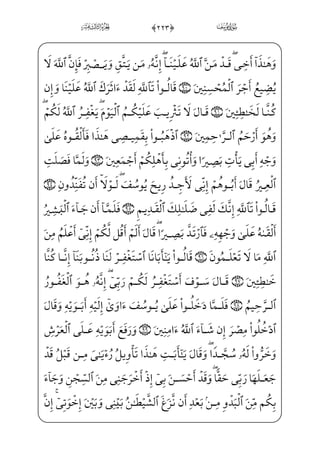 ﴿٢٢٣﴾
وَهَٰذَآ أَخِى ۖ قَدْ مَنَّ ٱللَّهُ عَلَيْنَآ ۖ إِنَّهُۥ مَن يَتَّقِ وَيَصْبِرْ فَإِنَّ ٱللَّهَ لَا
يُضِيعُ أَجْرَ ٱلْمُحْسِنِينَ ۝ قَالُوا۟ تَٱللَّهِ لَقَدْ ءَاثَرَكَ ٱللَّهُ عَلَيْنَا وَإِن
كُنَّا لَخَٰطِـِٔينَ ۝ قَالَ لَا تَثْرِيبَ عَلَيْكُمُ ٱلْيَوْمَ ۖ يَغْفِرُ ٱللَّهُ لَكُمْ ۖ
وَهُوَ أَرْحَمُ ٱلرَّٰحِمِينَ ۝ ٱذْهَبُوا۟ بِقَمِيصِى هَٰذَا فَأَلْقُوهُ عَلَىٰ
وَجْهِ أَبِى يَأْتِ بَصِيرًا وَأْتُونِى بِأَهْلِكُمْ أَجْمَعِينَ ۝ وَلَمَّا فَصَلَتِ
ٱلْعِيرُ قَالَ أَبُوهُمْ إِنِّى لَأَجِدُ رِيحَ يُوسُفَ ۖ لَوْلَآ أَن تُفَنِّدُونِ ۝
قَالُوا۟ تَٱللَّهِ إِنَّكَ لَفِى ضَلَٰلِكَ ٱلْقَدِيمِ ۝ فَلَمَّآ أَن جَآءَ ٱلْبَشِيرُ
أَلْقَىٰهُ عَلَىٰ وَجْهِهِۦ فَٱرْتَدَّ بَصِيرًا ۖ قَالَ أَلَمْ أَقُل لَّكُمْ إِنِّىٓ أَعْلَمُ مِنَ
ٱللَّهِ مَا لَا تَعْلَمُونَ ۝ قَالُوا۟ يَٰٓأَبَانَا ٱسْتَغْفِرْ لَنَا ذُنُوبَنَآ إِنَّا كُنَّا
خَٰطِـِٔينَ ۝ قَالَ سَوْفَ أَسْتَغْفِرُ لَكُمْ رَبِّىٓ ۖ إِنَّهُۥ هُوَ ٱلْغَفُورُ
ٱلرَّحِيمُ ۝ فَلَمَّا دَخَلُوا۟ عَلَىٰ يُوسُفَ ءَاوَىٰٓ إِلَيْهِ أَبَوَيْهِ وَقَالَ
ٱدْخُلُوا۟ مِصْرَ إِن شَآءَ ٱللَّهُ ءَامِنِينَ ۝ وَرَفَعَ أَبَوَيْهِ عَلَى ٱلْعَرْشِ
وَخَرُّوا۟ لَهُۥ سُجَّدًا ۖ وَقَالَ يَٰٓأَبَتِ هَٰذَا تَأْوِيلُ رُءْيَٰىَ مِن قَبْلُ قَدْ
جَعَلَهَا رَبِّى حَقًّا ۖ وَقَدْ أَحْسَنَ بِىٓ إِذْ أَخْرَجَنِى مِنَ ٱلسِّجْنِ وَجَآءَ
بِكُم مِّنَ ٱلْبَدْوِ مِنۢ بَعْدِ أَن نَّزَغَ ٱلشَّيْطَٰنُ بَيْنِى وَبَيْنَ إِخْوَتِىٓ ۚ إِنَّ